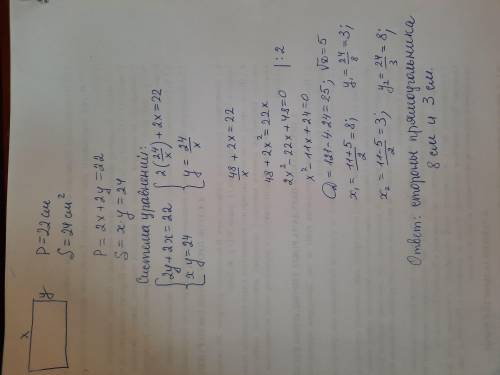 x
y
P=22см
S=24 см²
P=2x+2y=22
S=x·y=24
Система уравнений:
{2y+2x=22 {2(24/x)+2x=22
{x y=24 {y=24/x
48/x+2x=22
48+2x²=22x
2x²-22x+48=0 |:2
x²-11x+24=0
D=121-4·24=25; √D=5
x₁=11+5/2=8; y₁=24/8=3;
x₂=11-5/2=3; y₂=24/3=8;
Ответ: стороны прямоугольника
8 см и 3 см.